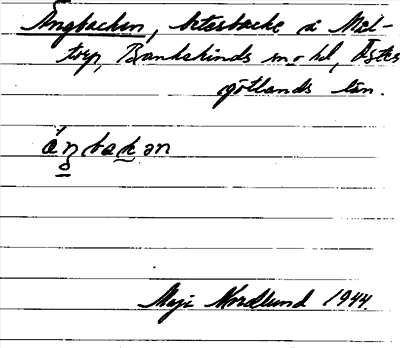 Ängbacken, betesbacke å Mel-
torp, Bankekinds sn o hd, Öster
götlands län.
áŋbakən
Maji Nordlund 1944